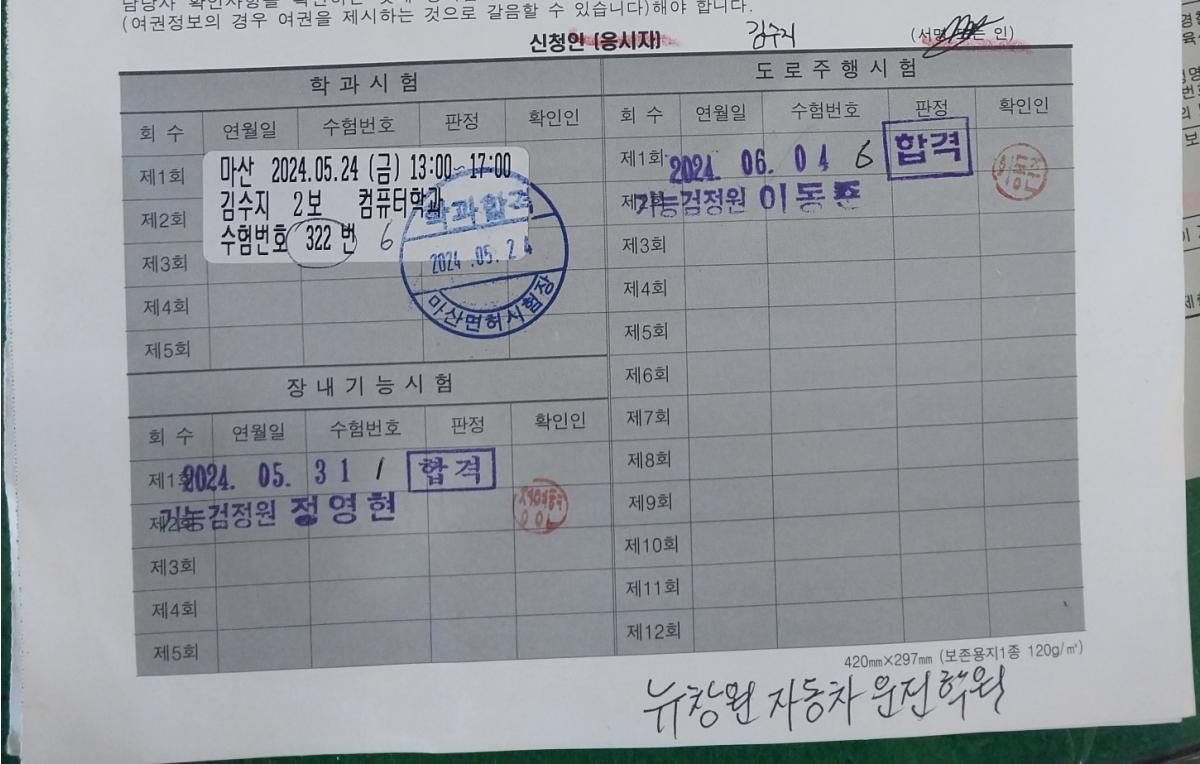 (여권정보의 경우 여권을 제시하는 것으로 갈음할 수 있습니다)해야 합니다.
신청인 (응시자) 김수지 (서명 또는 인)
학과시험
회 수 연월일 수험번호 판정 확인인
제1회
제2회
제3회
제4회
제5회
마산 2024.05.24 (금) 13:00~17:00
김수지 2보 컴퓨터학과
수험번호 322 번 6
학과합격
2024.05.24
마산면허시험장
장내기능시험
회 수 연월일 수험번호 판정 확인인
제1회 2024. 05. 31 1 합격
제2회 기능검정원 정영현
제3회
제4회
제5회
도로주행시험
회 수 연월일 수험번호 판정 확인인
제1회 2024. 06. 04 6 합격
제2회 기능검정원 이동준
제3회
제4회
제5회
제6회
제7회
제8회
제9회
제10회
제11회
제12회
420㎜×297㎜ (보존용지1종 120g/㎡)
뉴창원 자동차 운전학원